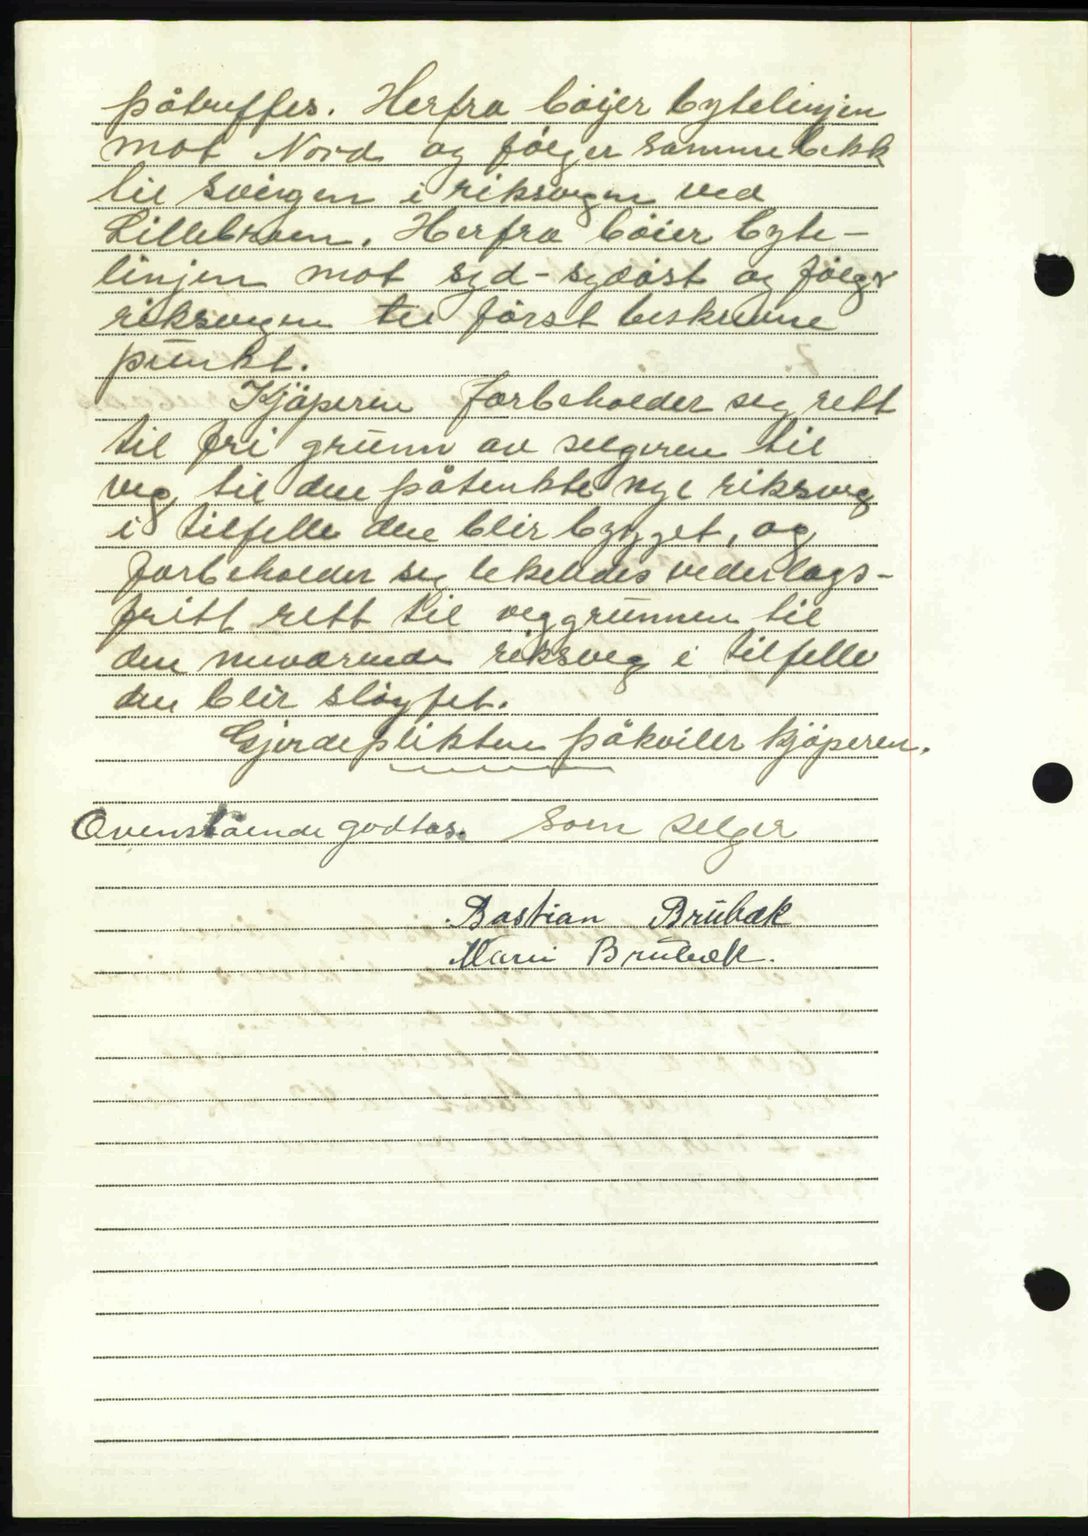 påtreffes. Herfra bøijer bytelinjen
mot Nord og følger samme bekk
til svingen i riksvegen ved
Lillebroen. Herfra bøier byte-
linjen mot syd-sydøst og følger
riksvegen til først beskrevne
punkt.
Kjøperen forbeholder seg rett
til fri grunn av selgeren til
veg til den påtenkte nye riksveg
i tilfelle den blir bygget, og
forbeholder seg likeledes vederlags-
fritt rett til veggrunnen til
den nuværende riksveg i tilfelle
den blir sløyfet.
Gjerdeplikten påkviler kjøperen.
Ovenstående godtas. Som selger
Bastian Brubæk
Marie Brubæk.